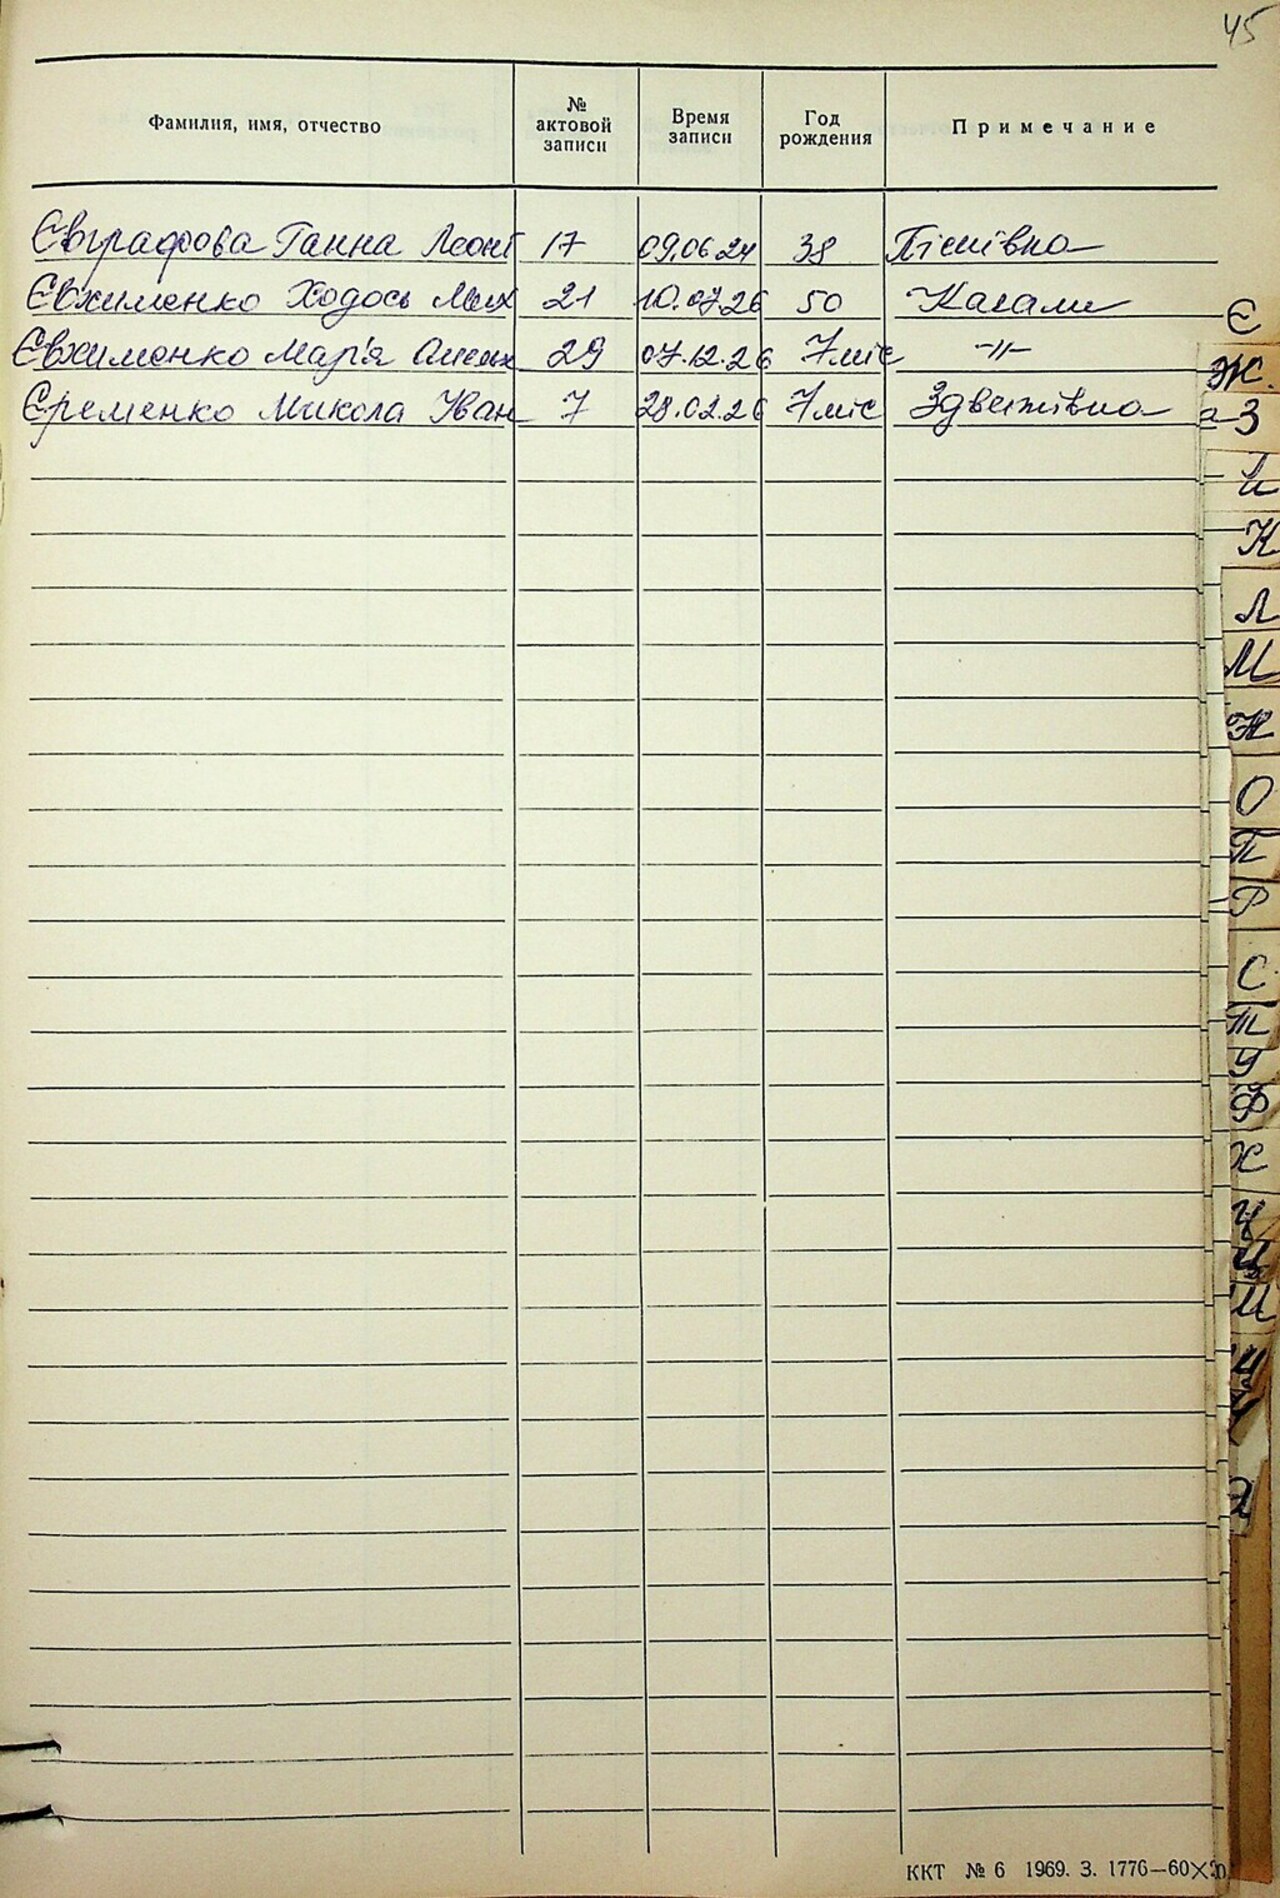 45
Фамилия, имя, отчество № актовой записи Время записи Год рождения Примечание
Євграфова Ганна Леонт 17 09.06.24 38 Пісківка
Євхименко Ходось Мих 21 10.07.26 50 Качали
Євхименко Мар'я 29 07.12.26 7 міс -"-
Єременко Микола Іван 7 28.02.26 7 міс Здвижівка
Є
Ж
З
І
и
К
Л
М
Н
О
П
Р
С
Т
У
Ф
Х
Ц
Ш
ККТ № 6 1969. З. 1776—60×